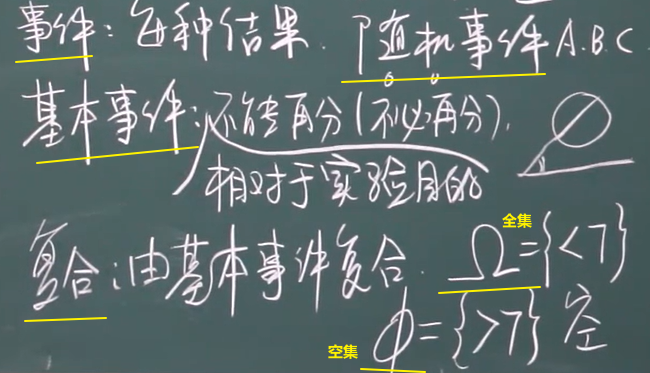 事件：每种结果. 随机事件 A.B.C
基本事件：不能再分（不必再分）.
相对于实验目的
全集
复合：由基本事件复合. Ω={<7}
空集 φ={>7} 空